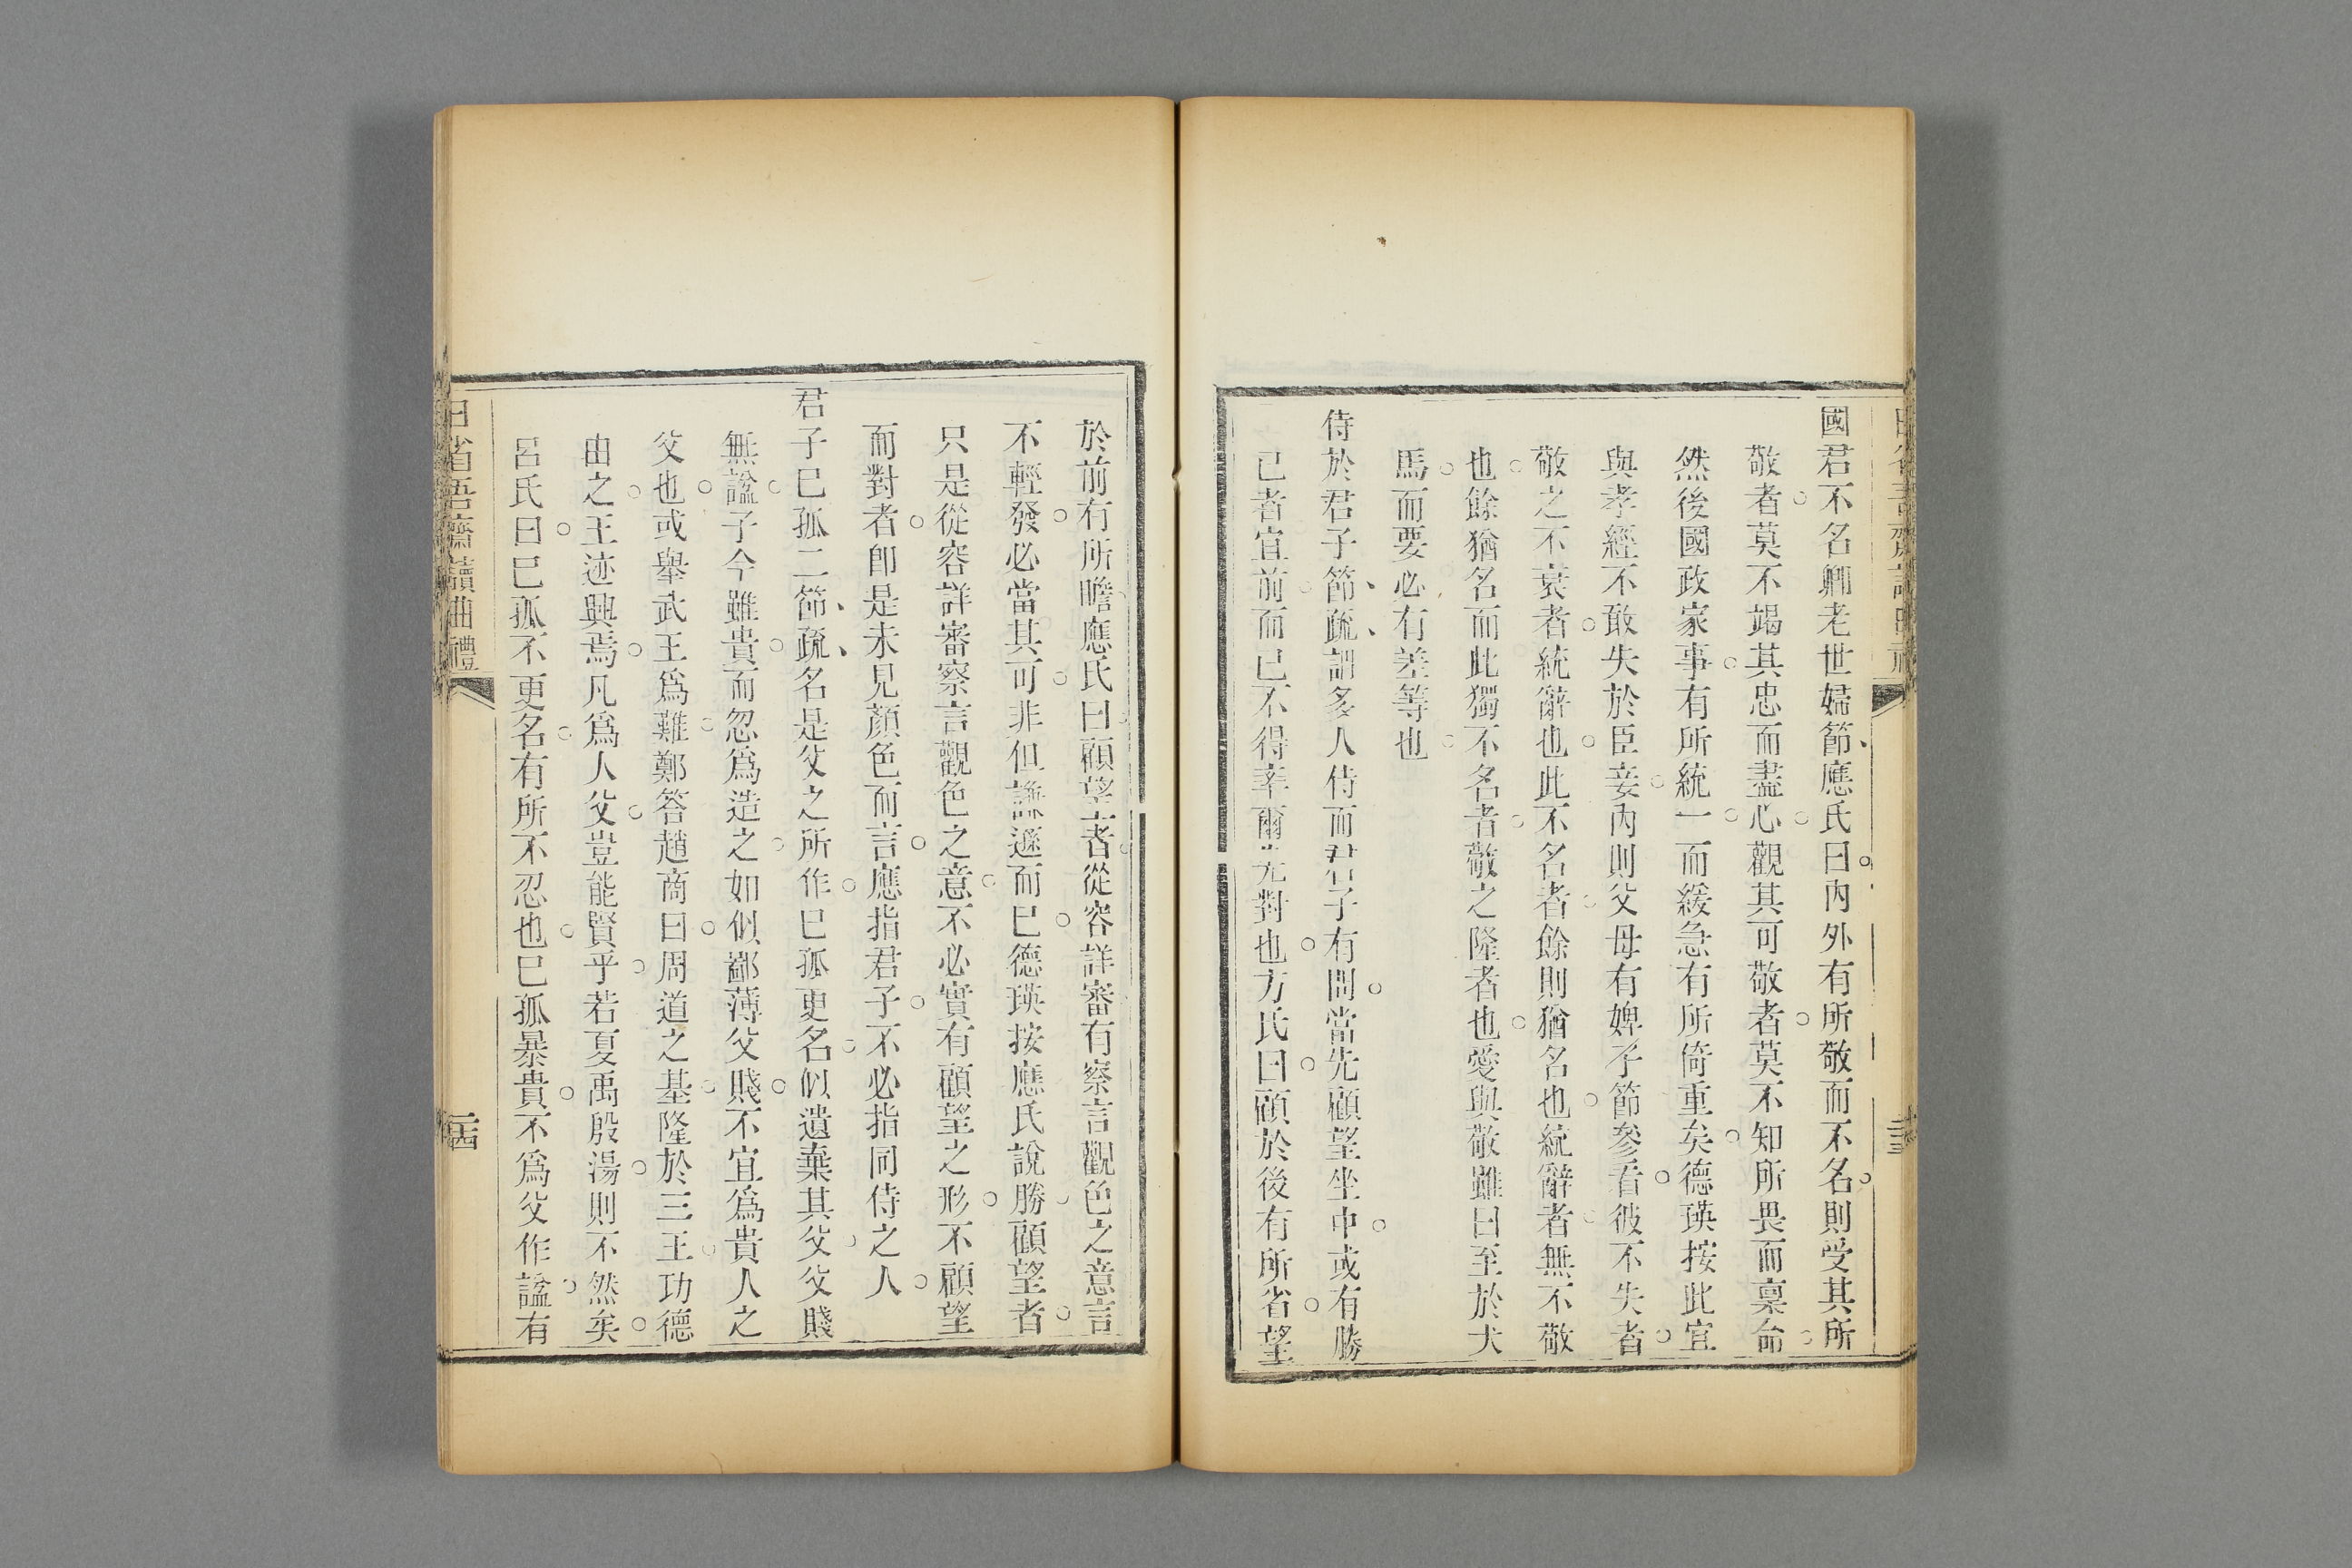 國君不名卿老世婦節應氏曰內外有所敬而不名則受其所
敬者莫不竭其忠而盡心觀其可敬者莫不知所畏而稟命
然後國政家事有所統一而緩急有所倚重矣德瑛按此宜
與孝經不敢失於臣妾內則父母有婢子節參看彼不失者
敬之不衰者統辭也此不名者餘則猶名也統辭者無不敬
也餘猶名而此獨不名者敬之隆者也愛與敬雖曰至於犬
馬而要必有差等也
侍於君子節疏謂多人侍而君子有問當先顧望坐中或有勝
己者宜前而已不得率爾先對也方氏曰顧於後有所省望
於前有所瞻應氏曰顧望者從容詳審有察言觀色之意言
不輕發必當其可非但謙遜而已德瑛按應氏說勝顧望者
只是從容詳審察言觀色之意不必實有顧望之形不顧望
而對者卽是未見顏色而言應指君子不必指同侍之人
君子已孤二節疏名是父之所作已孤更名似遺棄其父父賤
無諡子今雖貴而忽爲造之如似鄙薄父賤不宜爲貴人之
父也或舉武王爲難鄭答趙商曰周道之基隆於三王功德
由之王迹興焉凡爲人父豈能賢乎若夏禹殷湯則不然矣
呂氏曰已孤不更名有所不忍也已孤暴貴不爲父作諡有
日省吾齋讀曲禮
二十四